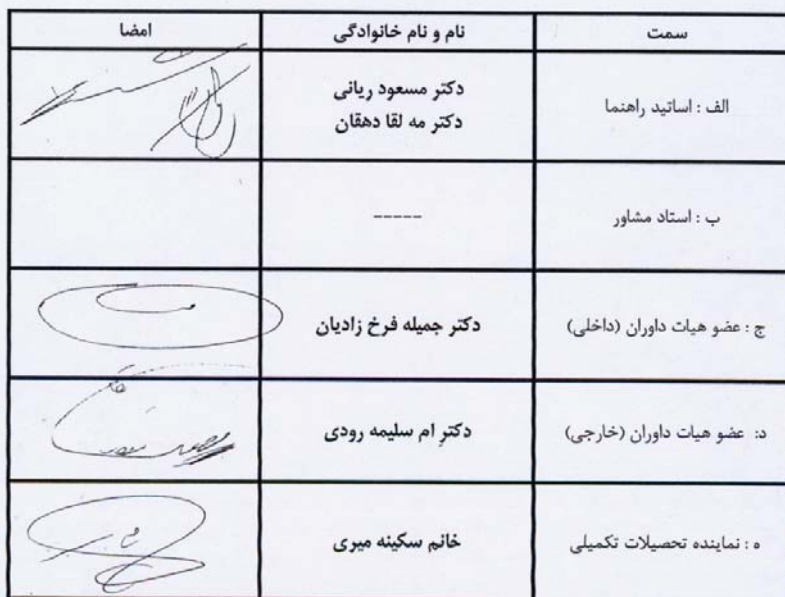 سمت نام و نام خانوادگی امضا
الف : اساتید راهنما دکتر مسعود ریانی
دکتر مه لقا دهقان
ب : استاد مشاور -----
ج : عضو هیات داوران (داخلی) دکتر جمیله فرخ زادیان
د: عضو هیات داوران (خارجی) دکتر ام سلیمه رودی
ه : نماینده تحصیلات تکمیلی خانم سکینه میری